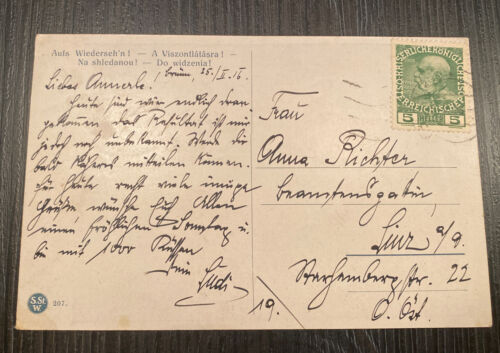 Aufs Wiederseh'n! — A Viszontlátásra!
Na shledanou! — Do widzenia!
Brünn, 25./II.16.
Liebes Annerle.
Heute sind wir endlich dran-
gekommen das Resultat ist mir
jedoch noch unbekannt. Werde dir
bald Näheres mitteilen können.
Für heute recht viele innige
Grüße wünsche Euch Allen
einen fröhlichen Sonntag u.
bis mit 1000 Küssen
Dein
Frau
Anna Richter
Beamtensgattin
Linz a/D.
Starhembergstr. 22
19.
O. Öst.
5 HELLER 5
S.St.
W
207.